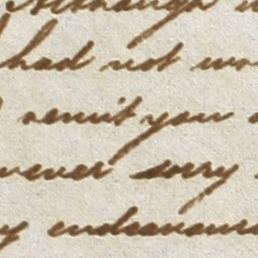 Although
had not
remit you
ever sorry
y endeavours